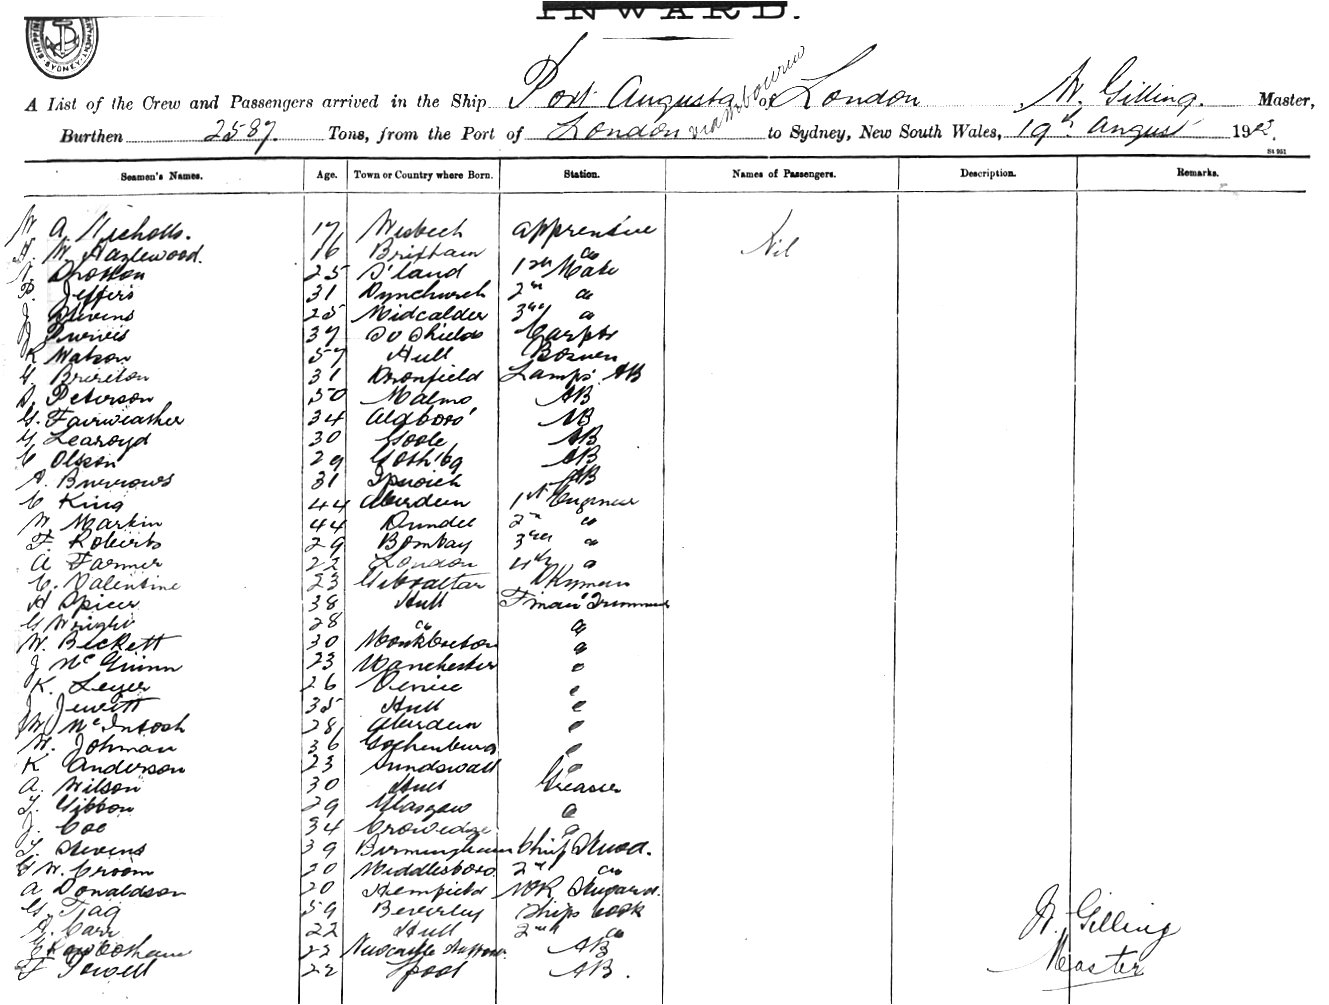 INWARD.
A List of the Crew and Passengers arrived in the Ship Port Augusta of London W. Gilling. Master,
Burthen 2587. Tons, from the Port of London via Melbourne to Sydney, New South Wales, 19th August 1903.
Seamen's Names. Age. Town or Country where Born. Station. Names of Passengers. Description. Remarks.
W A Nicholls. 17 Wisbech apprentice Nil
H. W Hazlewood. 16 Brixham do
25 S'land 1st Mate
Jeffers 31 Dymchurch 2nd do
J Stevens 25 Midcalder 3rd do
J Purvis 37 So Shields Carptr
R Watson 57 Hull Bosun
G. Brereton 31 Dronfield Lamps AB
Peterson 50 Malmo AB
G. Fairweather 34 Aldboro' AB
G Learoyd 30 Goole AB
C Olsson 29 Goth'bg AB
A. Burrows 31 Ipswich AB
C King 44 Aberdeen 1st Engineer
W Markin 44 Dundee 2nd do
F. Roberts 29 Bombay 3rd do
A Farmer 22 London 4th do
C. Valentine 23 Gibraltar Dkyman
H Spicer 38 Hull F'man & Trimmer
G Wright 28 do do
W. Beckett 30 Monkton do
J McGuinn 23 Manchester do
K. Leyer 26 Venice do
J. Jewitt 35 Hull do
W McIntosh 28 Aberdeen do
W. Johman 36 Gothenburg do
K Anderson 23 Sundswall do
A. Wilson 30 Hull Greaser
T. Gibbon 29 Glasgow do
J. Coe 34 do
T. Stevens 39 Birmingham Chief Stwd.
G W. Croom 20 Middlesboro 2nd do
A Donaldson 20 Hemfield MR Steward.
G. Tag 59 Beverley Ships Cook
A. Carr 22 Hull 2nd do
22 Newcastle AB
F Powell 22 L'pool AB.
W. Gilling
Master